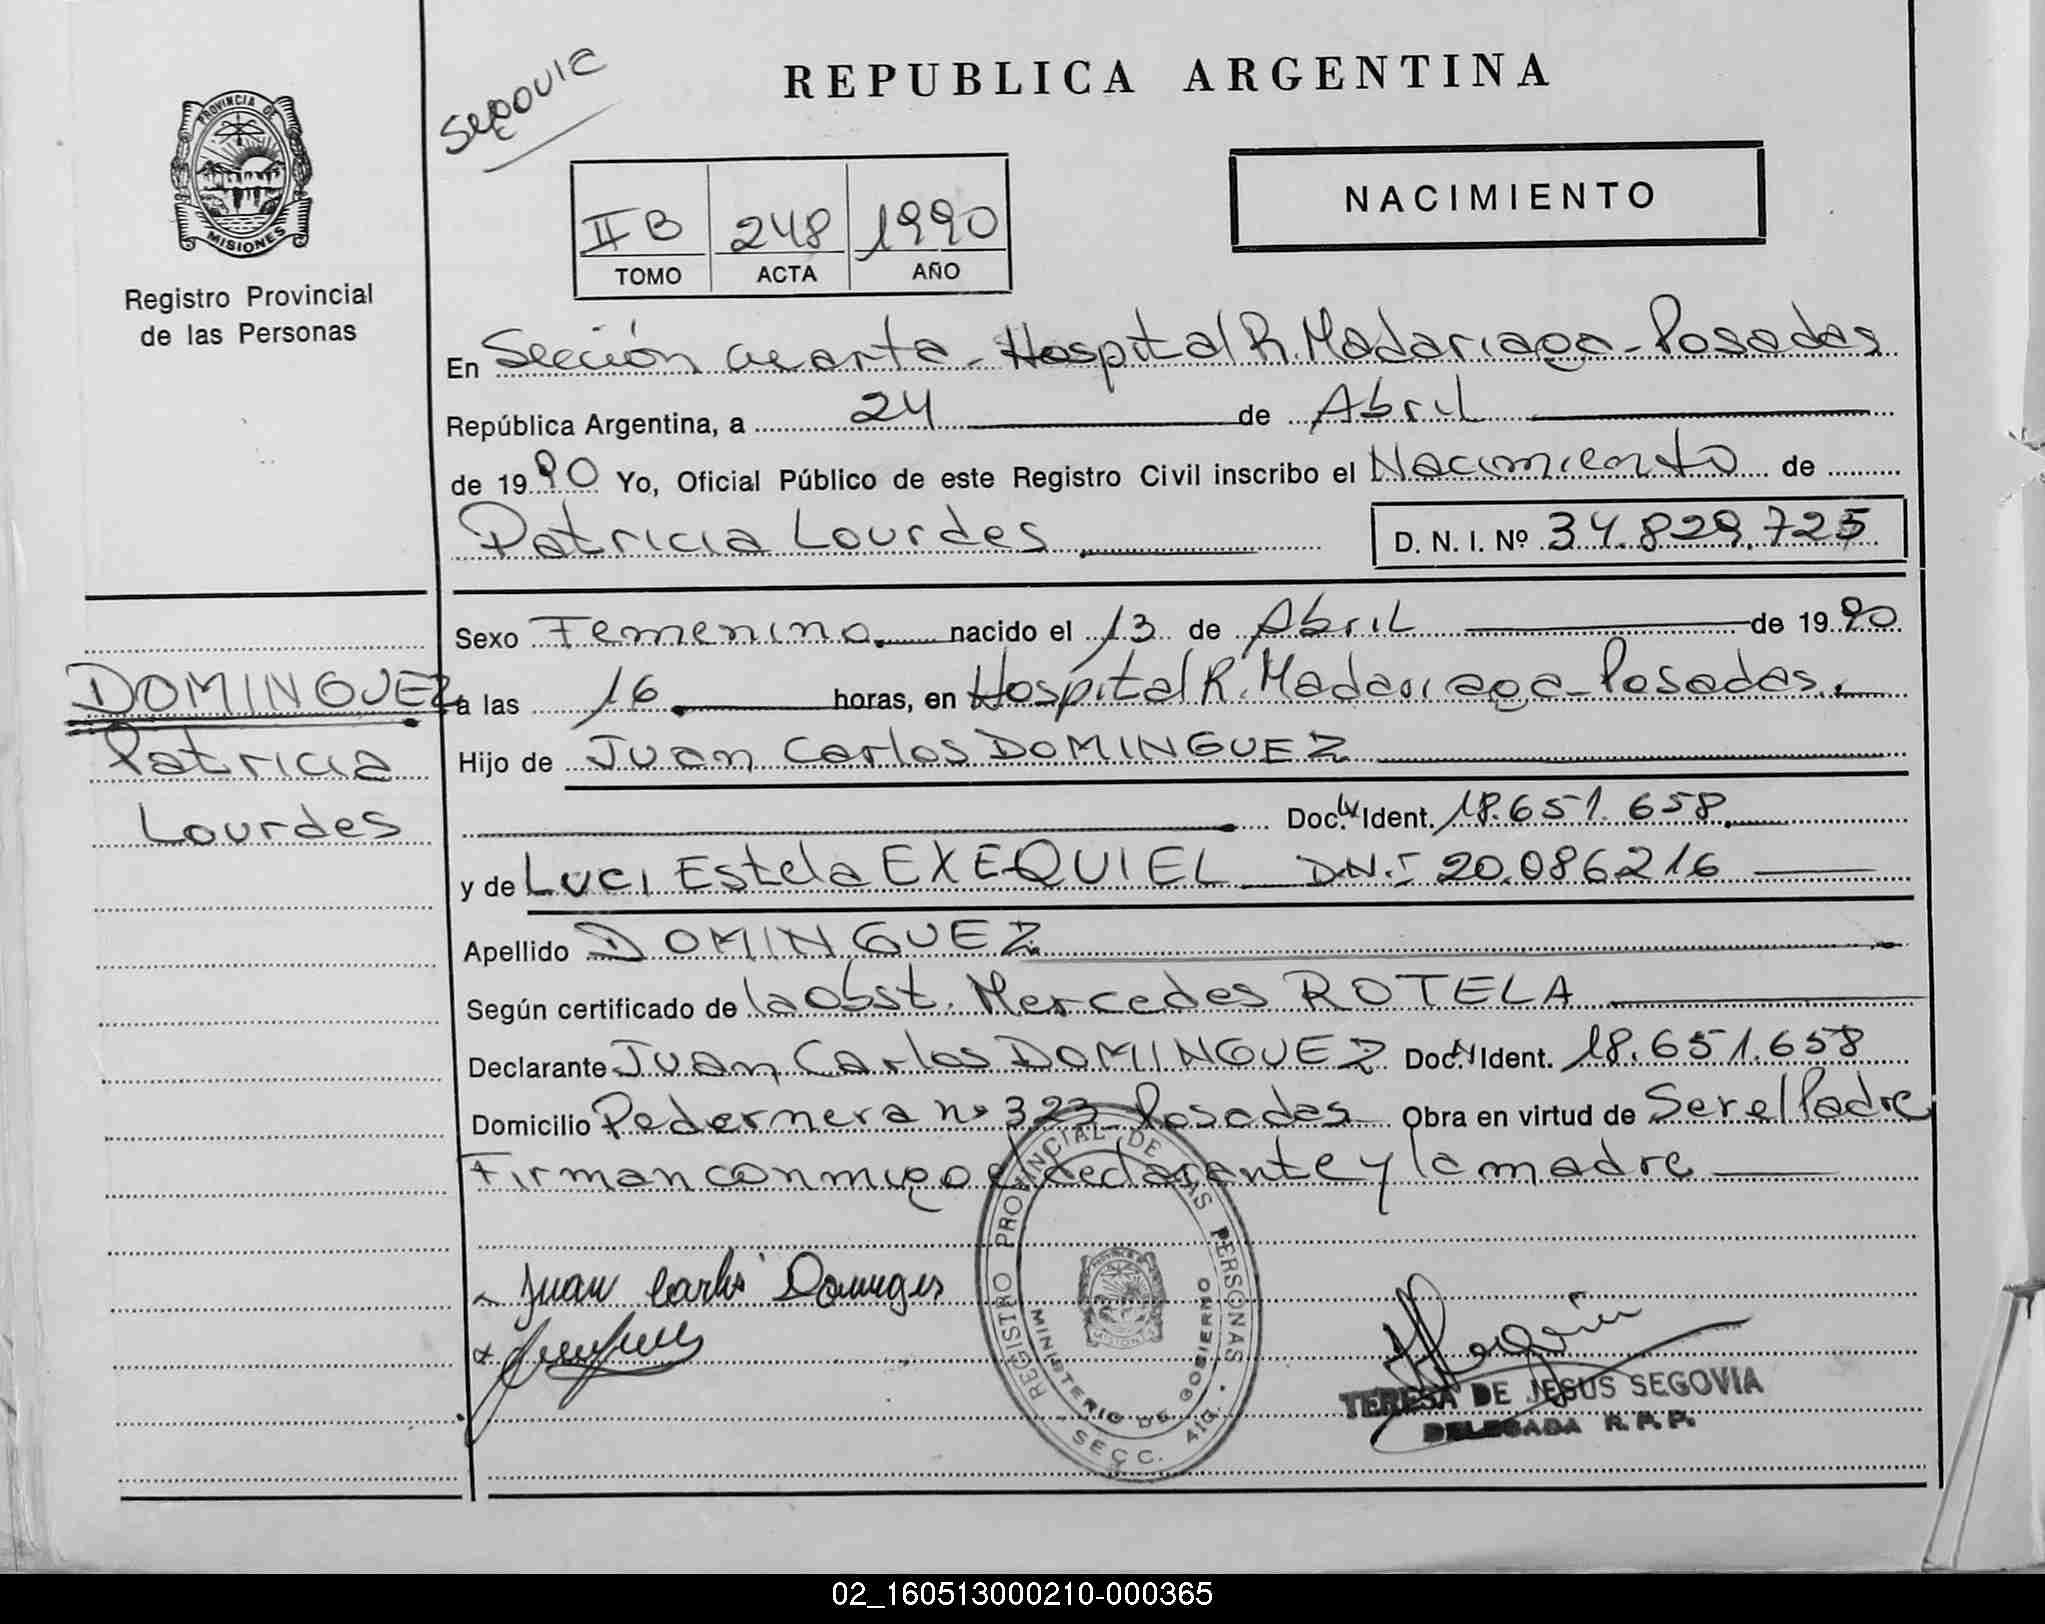 PROVINCIA DE
MISIONES
Registro Provincial
de las Personas
REPUBLICA ARGENTINA
NACIMIENTO
II B 248 1990
TOMO ACTA AÑO
En Sección cuarta - Hospital R. Madariaga - Posadas
República Argentina, a 24 de Abril
de 1990 Yo, Oficial Público de este Registro Civil inscribo el Nacimiento de
Patricia Lourdes D. N. I. Nº 34.829.725
Sexo Femenino nacido el 13 de Abril de 1990
DOMINGUEZ
Patricia
Lourdes
a las 16 horas, en Hospital R. Madariaga - Posadas.
Hijo de Juan Carlos DOMINGUEZ
Doc. Ident. 18.651.658
y de Luci Estela EXEQUIEL D.N.I 20.086216
Apellido DOMINGUEZ
Según certificado de la Obst. Mercedes ROTELA
Declarante Juan Carlos DOMINGUEZ Doc. Ident. 18.651.658
Domicilio Pedernera nº 323 Posadas Obra en virtud de Ser el Padre
Firman conmigo el declarante y la madre
Juan Carlos Dominges
REGISTRO PROVINCIAL DE LAS PERSONAS
MINISTERIO DE GOBIERNO
SECC. 4ta.
TERESA DE JESUS SEGOVIA
DELEGADA R. P. P.
02_160513000210-000365